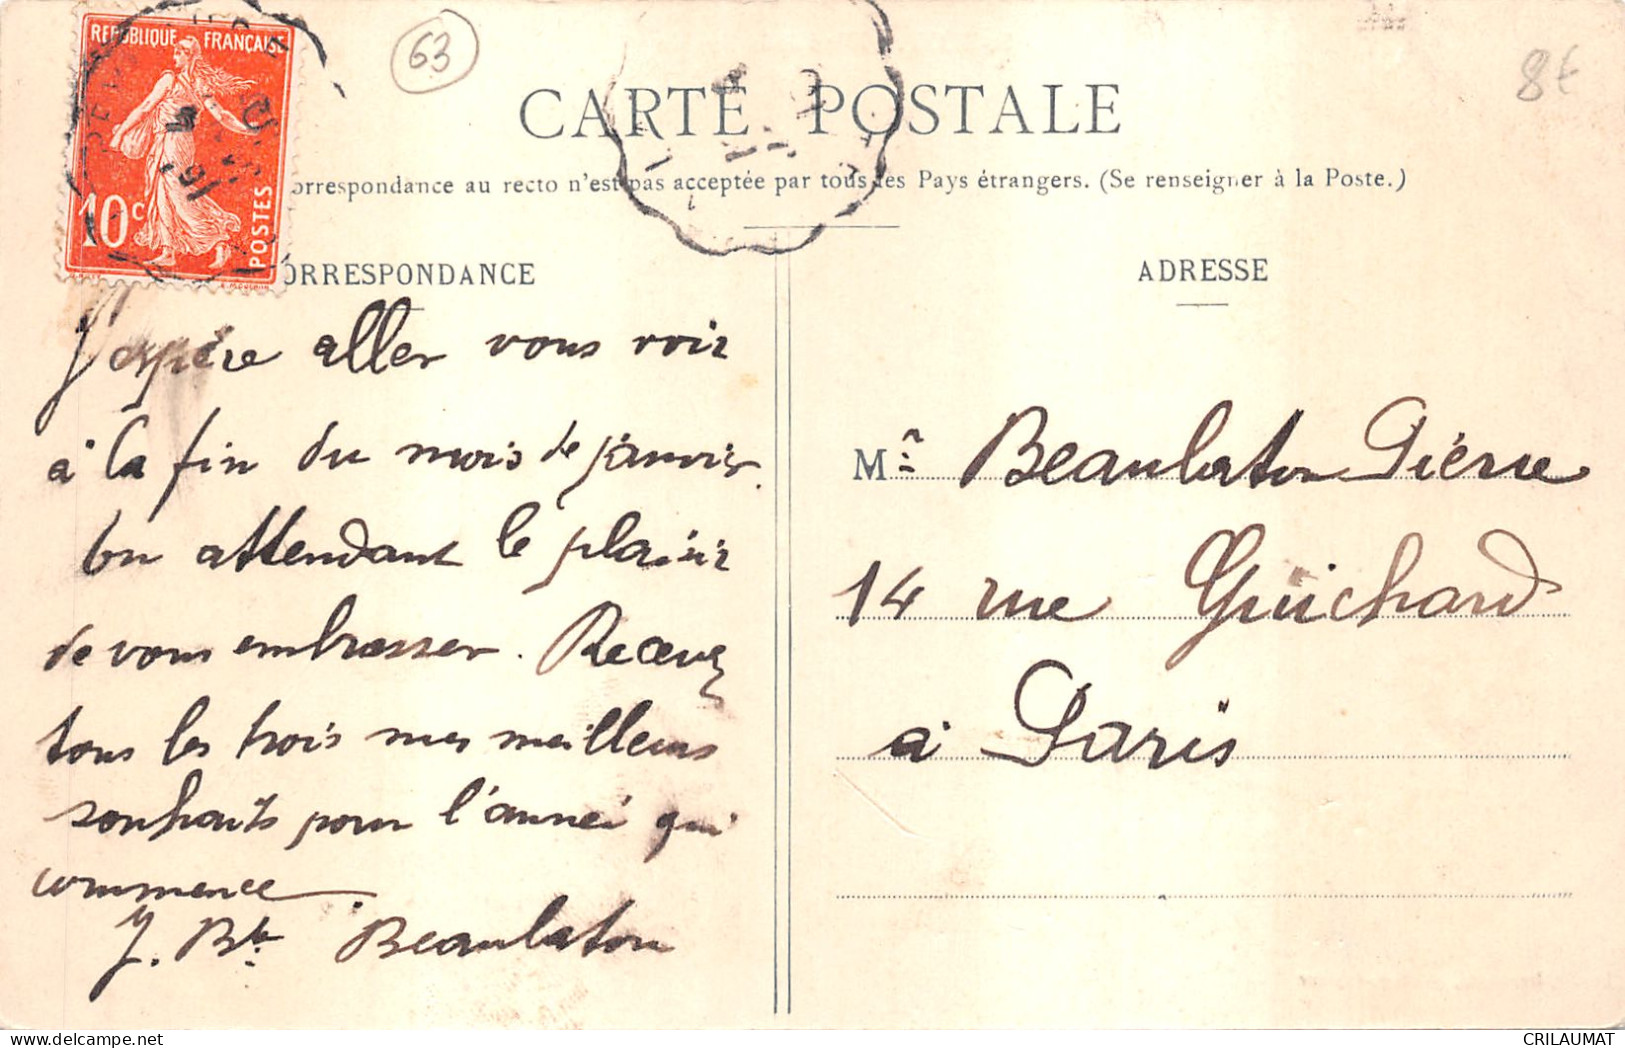 RÉPUBLIQUE FRANÇAISE
10c POSTES
63
8€
CARTE POSTALE
orrespondance au recto n'est pas acceptée par tous les Pays étrangers. (Se renseigner à la Poste.)
ORRESPONDANCE
J'espère aller vous voir
à la fin du mois de janvier.
En attendant le plaisir
de vous embrasser. Recevez
tous les trois mes meilleurs
souhaits pour l'année qui
commence.
J. Bte Beaulaton
ADRESSE
Mr Beaulaton Pierre
14 rue Guichard
à Paris
CRILAUMAT